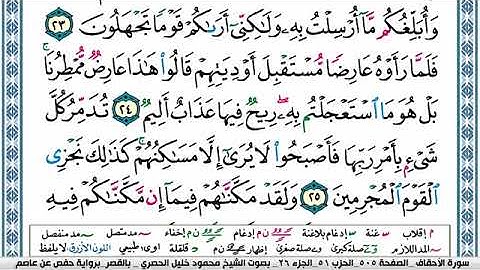 وَأُبَلِّغُكُم مَّآ أُرْسِلْتُ بِهِۦ وَلَٰكِنِّىٓ أَرَىٰكُمْ قَوْمًا تَجْهَلُونَ ٢٣
فَلَمَّا رَأَوْهُ عَارِضًا مُّسْتَقْبِلَ أَوْدِيَتِهِمْ قَالُوا۟ هَٰذَا عَارِضٌ مُّمْطِرُنَا ۚ
بَلْ هُوَ مَا ٱسْتَعْجَلْتُم بِهِۦ ۖ رِيحٌ فِيهَا عَذَابٌ أَلِيمٌ ٢٤ تُدَمِّرُ كُلَّ
شَىْءٍۭ بِأَمْرِ رَبِّهَا فَأَصْبَحُوا۟ لَا يُرَىٰٓ إِلَّا مَسَٰكِنُهُمْ ۚ كَذَٰلِكَ نَجْزِى
ٱلْقَوْمَ ٱلْمُجْرِمِينَ ٢٥ وَلَقَدْ مَكَّنَّٰهُمْ فِيمَآ إِن مَّكَّنَّٰكُمْ فِيهِ
م إقلاب ـّ غنة ـ إدغام بلاغنة ن م إدغام ن م إخفاء ~ مد متصل ~ مد منفصل
~ مد اللازم صلة كبرى صلة صغرى ن م إظهار قلقلة اوى طبيعي اللون الأزرق لا يلفظ
سورة الأحقاف _ الصفحة ٥٠٥ _ الحزب ٥١ _ الجزء ٢٦ _ بصوت الشيخ محمود خليل الحصري _ بالقصر_ برواية حفص عن عاصم